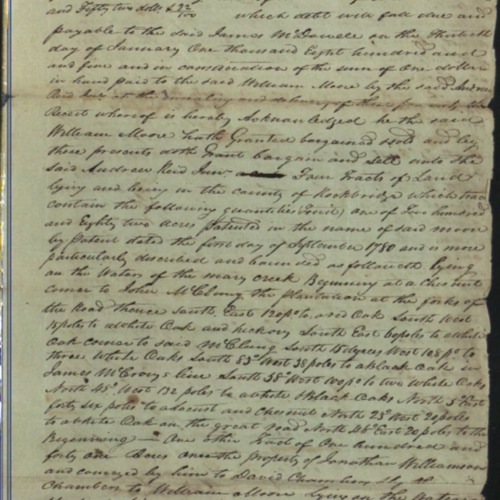 and Fifty two dolls & 32/100 which debt will fall due and
payable to the said James McDowell on the
day of January One thousand Eight hundred and
and five and in consideration of the sum of One dollar
in hand paid to the said William Moore by the said Andrew
Reid Junr at the sealing and delivery of these presents the
Receit whereof is hereby Acknowledged he the said
William Moore hath Granted bargained sold and by
these presents doth Grant bargain and Sell unto the
said Andrew Reid Junr Four Tracts of Land
lying and being in the County of Rockbridge which tracts
contain the following quantities (to wit) one of Two hundred
and Eighty two acres Patented in the name of said Moore
by Patent dated the first day of September 1780 and is more
particularly discribed and bounded as followeth lying
on the Waters of the Mary Creek Beginning at a Chesnut
corner to John McClung the plantation at the forks of
the Road thence South East 120 po to a red Oak South West
poles to a White Oak and hickory South East 60 poles to a White
Oak corner to said McClung South 15 degrees West 108 po to
three White Oaks South 53° West 38 poles to a Black Oak in
James McCrory's line South 38° West 100 po to two White Oaks
North 45° West 132 poles to a White & Black Oaks North 5° East
forty six poles to a locust and Chesnut North 23° West 20 poles
to a White Oak on the great road North 46° East 20 poles to the
Beginning — One other Tract of One hundred and
forty one Acres once the property of Jonathan Williamson
and conveyed by him to David Chambers
Chambers to William Moore Lying on the Waters